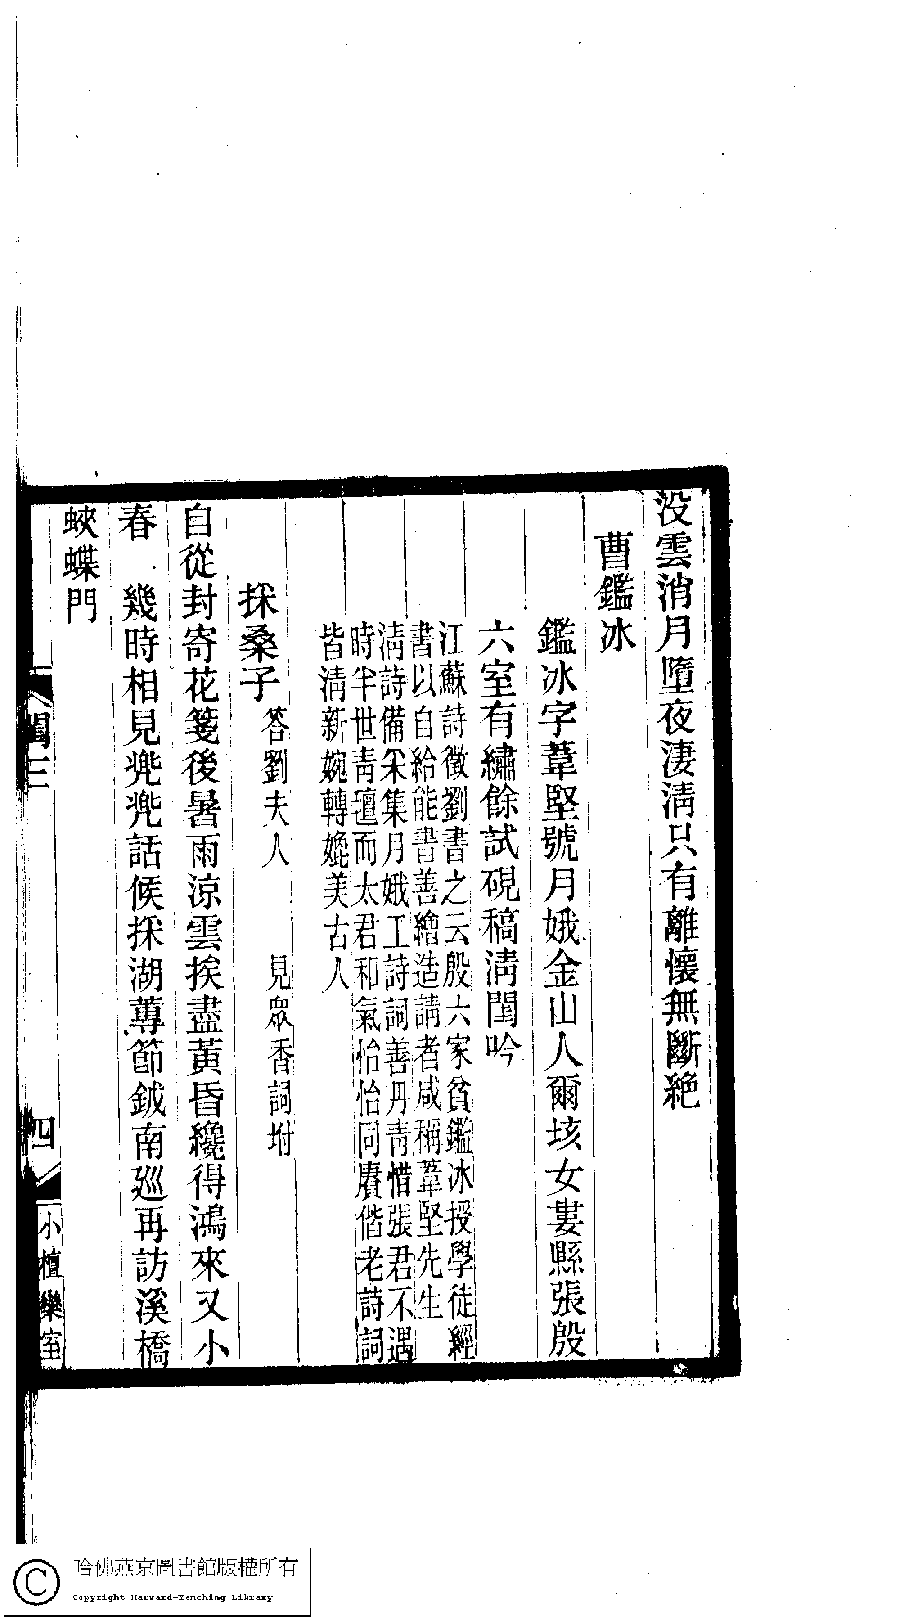 没雲消月墮夜淒淸只有離懷無斷絶
曹鑑冰
鑑冰字葦堅號月娥金山人爾垓女婁縣張殷
六室有繡餘試硯稿淸閨吟
江蘇詩徵劉書之云殷六家貧鑑冰授學徒經
書以自給能書善繪造請者咸稱葦堅先生
淸詩備采集月娥工詩詞善丹靑惜張君不遇
時半世靑氊而太君和氣怡怡同賡偕老詩詞
皆淸新婉轉媲美古人
採桑子 答劉夫人 見眾香詞坿
自從封寄花箋後暑雨涼雲挨盡黃昏纔得鴻來又小
春 幾時相見兜兜話候採湖蓴節鉞南巡再訪溪橋
蛺蝶門
閨三
四
小檀欒室
哈佛燕京圖書館版權所有
Copyright Harvard-Yenching Library